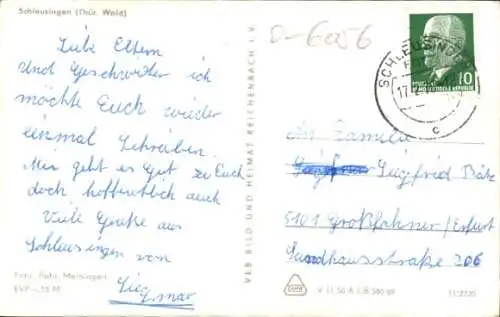 Schleusingen (Thür. Wald)
Liebe Eltern
und Geschwister ich
möchte Euch wieder
einmal Schreiben.
Mir geht es Gut zu Euch
doch hoffentlich auch
Viele Grüße aus
Schleusingen von
Siegmar
Foto: Pohl, Meiningen
EVP –,15 M
VEB BILD UND HEIMAT REICHENBACH i. V.
D-6056
SCHLEUSINGEN
17.
c
10
An Familie
Siegfried
5101 Großfahner/Erfurt
Sundhausstraße 206
V 11 50 A 1/B 580/69
11/2720